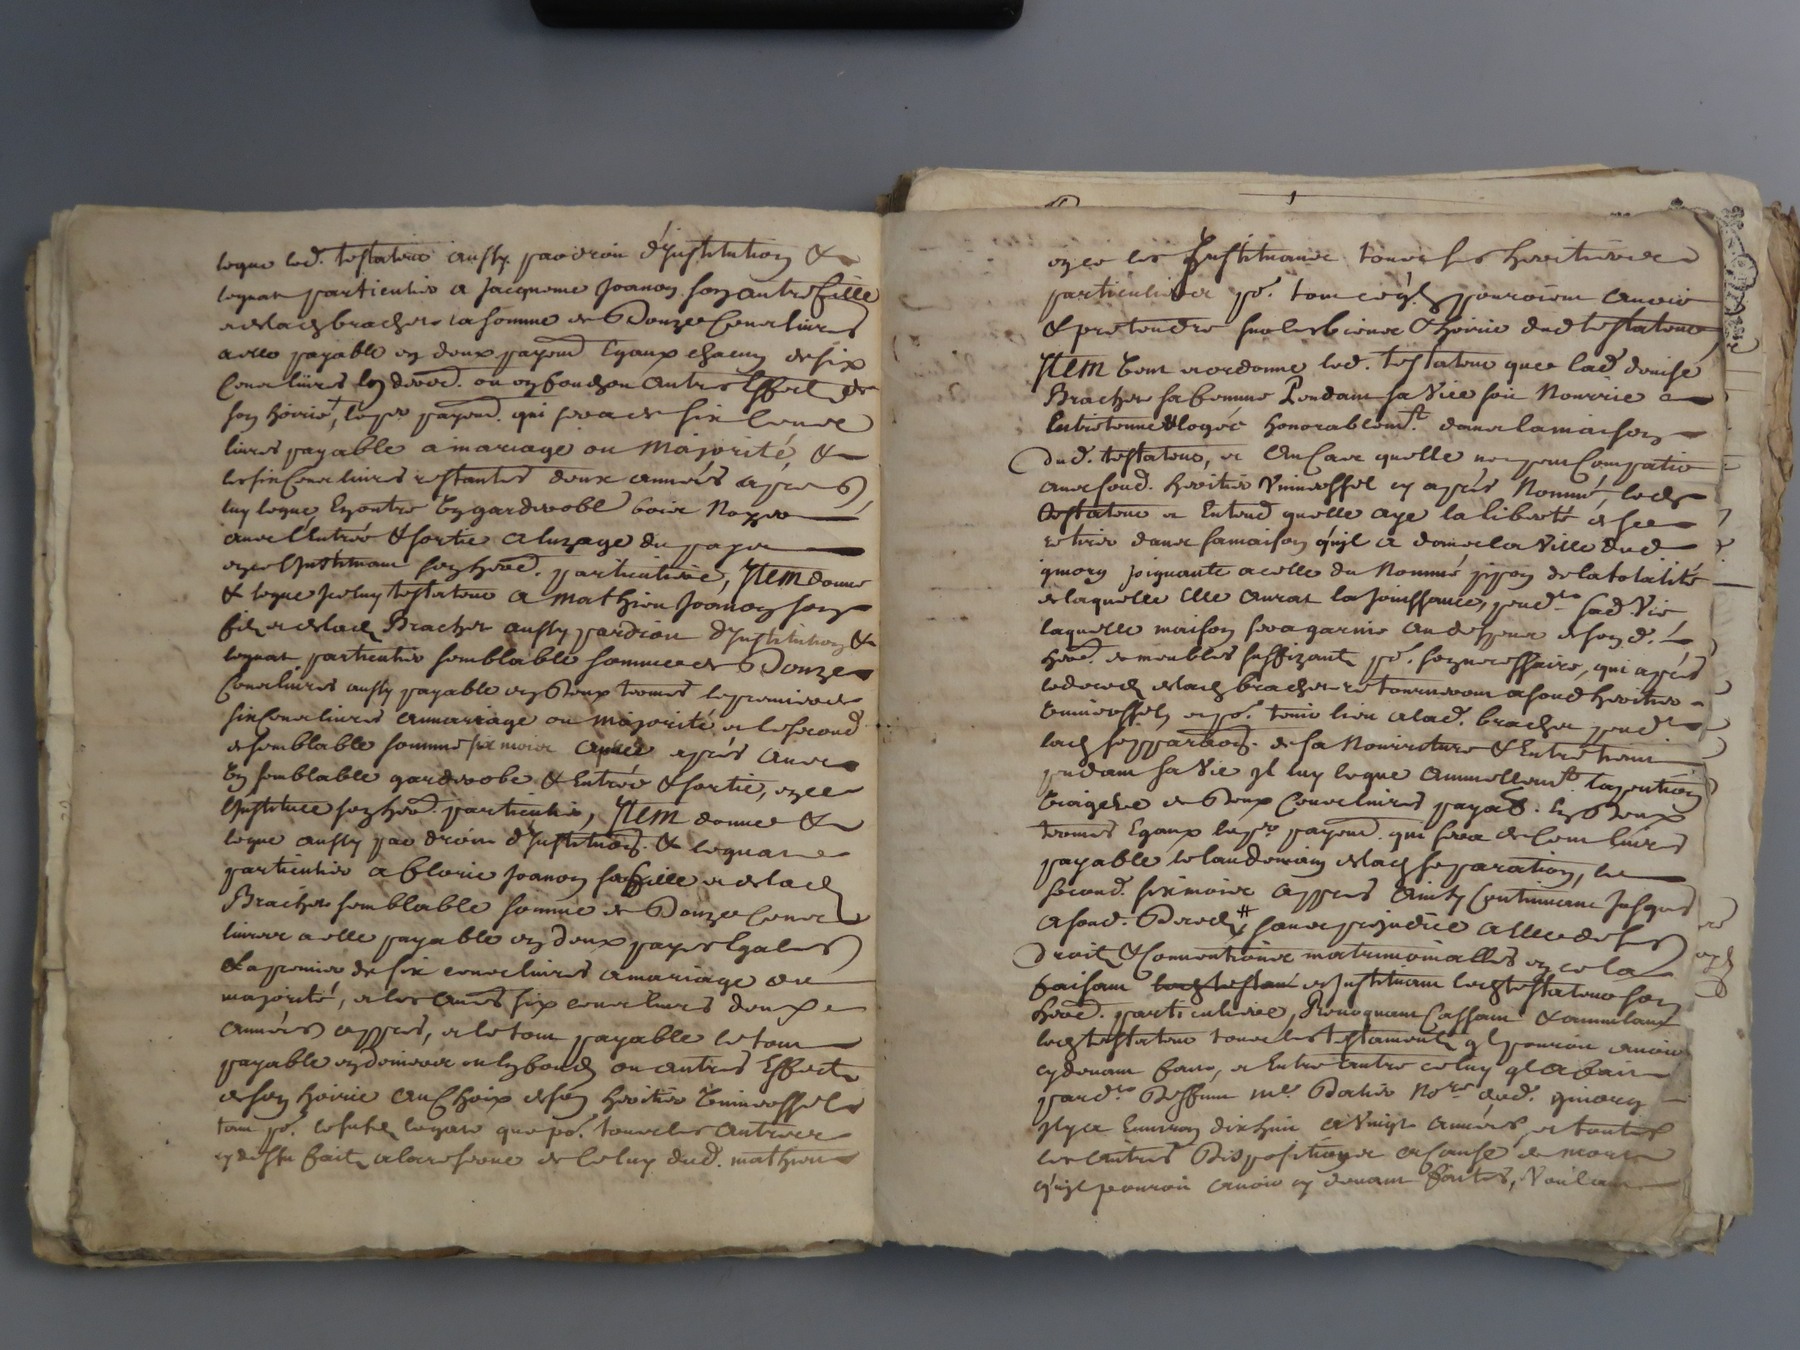 legue led. testateur aussy par droit d'Institution &
legat particulier a Jacqueme Joanon son autre fille
et de lad brachet la somme de Douze Cent livres
a elle payable en deux payem Egaux chacun de six
Cent livres en deniers ou en fond ou autres Effect de
son hoirie, le p.er payem. qui sera de six Cent
livres payable a mariage ou Majorité, &
les six Cent livres restantes deux années apres,
luy legue En outre Un garderobe bois Noyer
avec l'Entrée & sortie a l'uzage du pays
en ce l'Instituant son hered. particuliere, ITEM donne
& legue Iceluy testateur a Mathieu Joanon son
fils et de lad Brachet aussy par droit d'Institution &
legat particulier semblable somme de Douze
Cent livres aussy payable en Deux termes le premier de
six Cent livres a mariage ou majorité et le second
de semblable somme six mois apres avec
Un semblable garderobe & Entrée & sortie, en ce
l'Institue son hered. particulier, ITEM donne &
legue aussy par droit d'Institution. & legat
particulier a Clorie Joanon sa fille et de lad
Brachet semblable somme de Douze Cent
livres a elle payable en deux payes Egales
La premier de six cent livres a mariage ou
majorité, et les autres six cent livres deux
années apres, et le tout payable le tout
payable en deniers ou en fonds ou autres Effects
de son hoirie au Choix de son heritier Universel
tant p.r le susd legat que p.r tous les autres
cy dessus faits a la reserve de Celuy dud. mathieu
en ce les Instituant tous ses heritiers
particuliers p.r tout ce qu'ils pourroient avoir
& pretendre sur les biens & hoirie dud testateur
ITEM veut et ordonne led. testateur que lad denise
Brachet sa femme Pendant sa Vie soit Nourrie
Entretenue & logée honorablem.t dans la maison
dud. testateur, et En Cas qu'elle ne peut Compatir
avec sond. heritier Universel cy après Nommé, led
testateur et Entend qu'elle aye la liberté de se
retirer dans sa maison qu'il a dans la Ville dud
joignante a celle du Nommé pipon de la totalité
de laquelle elle aurat la Jouissance, pend.t sad Vie
laquelle maison sera garnie aux depens de sond.
hered. de meubles suffizants p.r son necessaire, qui après
le deces de lad brachet retourneront a sond heritier
Universel, et p.r tenir lieu a lad. brachet pend.t
lad separaon. de sa Nourriture & Entretient
pendant sa Vie Il luy legue annuellem.t la pention
Viagere de Deux Cent livres payab. En Deux
termes Egaux le p.er payem. qui sera de Cent livres
payable le landemain de lad separation, le
second. six mois apres Ainsy Continuant Jusques
a sond. Deced # sans prejudice a elle de ses
Droits & Conventions matrimonialles en ce la
faisant et Instituant led testateur son
hered. particuliere, Revoquant Cassant & annulant
led testateur tous les testaments q'l pourroit avoir
cy devant faits, et Entre autre celuy q'l a fait
pard.t Deffunt m.e No.re dud.
Il y a Environ dix huit a Vingt années, et toutes
les autres Dispositions a Cause de mort
qu'il pourroit avoir cy devant faites, Voulant